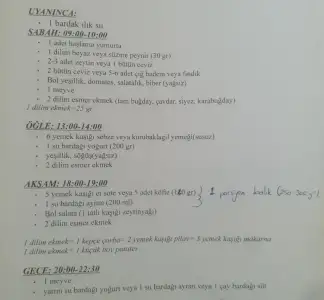 UYANINCA:
1 bardak ılık su
SABAH: 09:00-10:00
1 adet haşlanmış yumurta
1 dilim beyaz veya süzme peynir (30 gr)
2-3 adet zeytin veya 1 bütün ceviz
2 bütün ceviz veya 5-6 adet çiğ badem veya fındık
Bol yeşillik, domates, salatalık, biber (yağsız)
1 meyve
2 dilim esmer ekmek (tam buğday, çavdar, siyez, karabuğday)
1 dilim ekmek=25 gr
ÖĞLE: 13:00-14:00
6 yemek kaşığı sebze veya kurubaklagil yemeği(susuz)
1 su bardağı yoğurt (200 gr)
yeşillik, söğüş(yağsız)
2 dilim esmer ekmek
AKŞAM: 18:00-19:00
5 yemek kaşığı et sote veya 5 adet köfte ( gr) } 1 porsiyon balık
1 su bardağı ayran (200 ml)
Bol salata (1 tatlı kaşığı zeytinyağı)
2 dilim esmer ekmek
1 dilim ekmek= 1 kepçe çorba= 2 yemek kaşığı pilav= 3 yemek kaşığı makarna
1 dilim ekmek= 1 küçük boy patates
GECE: 20:00-22:30
1 meyve
yarım su bardağı yoğurt veya 1 su bardağı ayran veya 1 çay bardağı süt